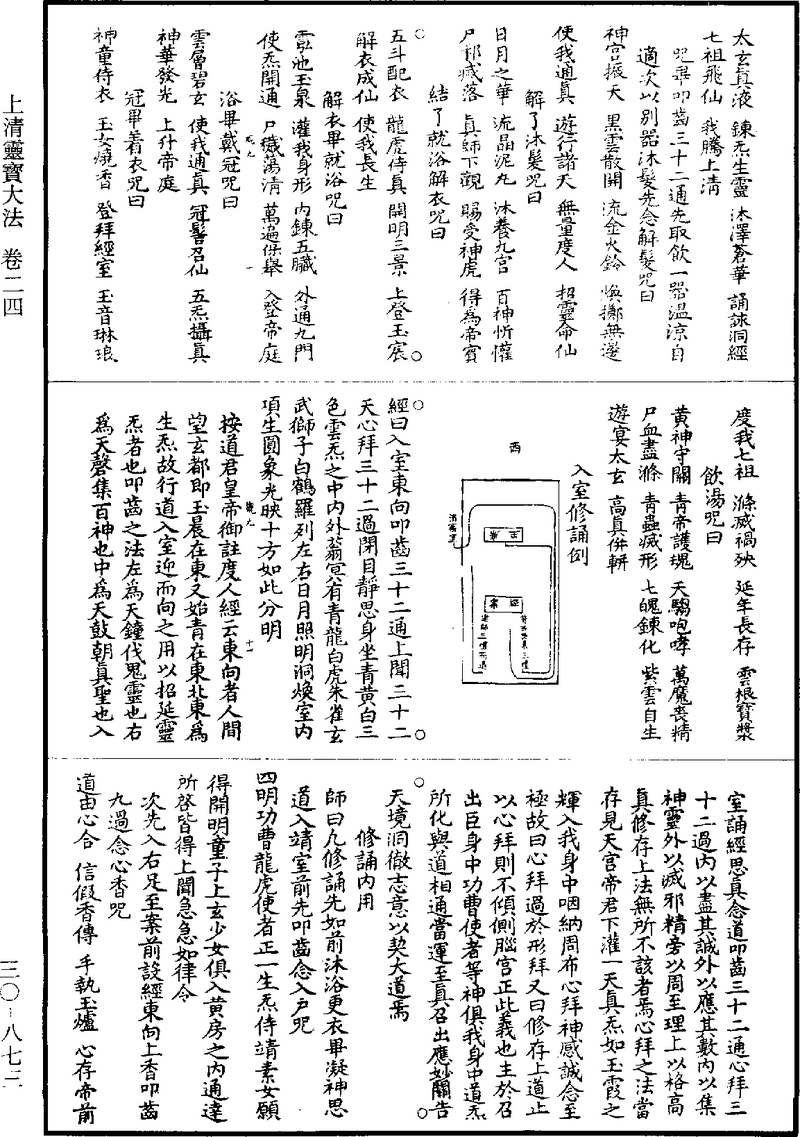 太玄真液　鍊炁生靈　沐澤蒼華　誦詠洞經
七祖飛仙　我騰上清
咒畢叩齒三十二通先取飲一器溫涼自
適次以別器沐髮先念解髮咒曰
神宮掖天　黑雲散開　流金火鈴　煥擲無邊
使我通真　遊行諸天　無量度人　招靈命仙
解了沐髮咒曰
日月之華　流晶泥丸　沐養九宮　百神忻懽
尸鄣滅落　真師下觀　賜受神虎　得為帝賓
結了就浴解衣咒曰
五斗配衣　龍虎侍真　開明三景　上登玉宸
解衣成仙　使我長生
解衣畢就浴咒曰
雲池玉泉　灌我身形　內鍊五臟　外通九門
使炁開通　尸穢蕩清　萬遍保舉　入登帝庭
浴畢戴冠咒曰
雲層碧玄　使我通真　冠髻召仙　五炁攝真
神華發光　上升帝庭
冠畢着衣咒曰
神童侍衣　玉女燒香　登拜經室　玉音琳琅
度我七祖　滌滅禍殃　延年長存　雲根寶漿
飲湯咒曰
黃神守關　青帝護魂　天騶咆哮　萬魔喪精
尸血盡滌　青蟲滅形　七魄鍊化　紫雲自生
遊宴太玄　高真併軿
入室修誦例
西
經案
經曰入室東向叩齒三十二通上聞三十二
天心拜三十二過閉目靜思身坐青黃白三
色雲炁之中內外蓊冥有青龍白虎朱雀玄
武獅子白鶴羅列左右日月照明洞煥室內
項生圓象光映十方如此分明
按道君皇帝御註度人經云東向者人間
望玄都即玉晨在東又始青在東北東為
生炁故行道入室迎而向之用以招延靈
炁者也叩齒之法左為天鐘伐鬼靈也右
為天磬集百神也中為天鼓朝真聖也入
室誦經思真念道叩齒三十二通心拜三
十二過內以盡其誠外以應其數內以集
神靈外以滅邪精旁以周至理上以格高
真修存上法無所不該者焉心拜之法當
存見天宮帝君下灌一天真炁如玉霞之
輝入我身中咽納周布心拜神感誠念至
極故曰心拜過於形拜又曰修存上道止
以心拜則不傾側腦宮正此義也主於召
出臣身中功曹使者等神俱我身中道炁
所化與道相通當運至真召出應妙關告
天境洞徹志意以契大道焉
修誦內用
師曰凡修誦先如前沐浴更衣畢凝神思
道入靖室前先叩齒念入戶咒
四明功曹龍虎使者正一生炁侍靖素女願
得開明童子上玄少女俱入黃房之內通達
所啓皆得上聞急急如律令
次先入右足至案前設經東向上香叩齒
九過念心香咒
道由心合　信假香傳　手執玉爐　心存帝前
上清靈寶大法　卷二四
三〇-八七二